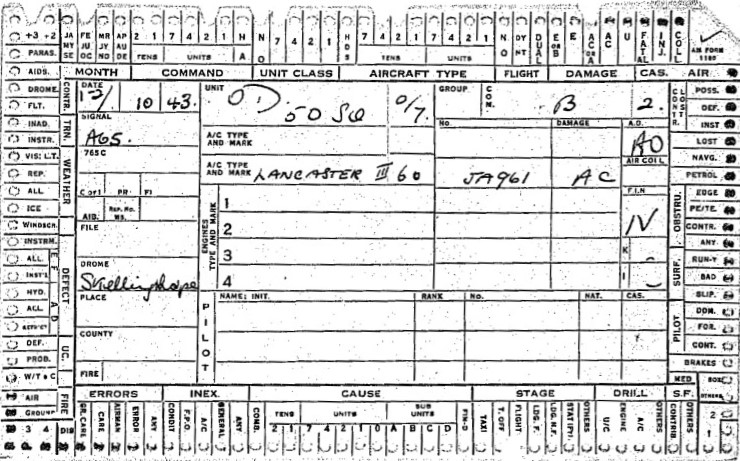 +3 +2 JA MY SE FE JU OC MR JY NO AP AU DE 2 1 7 4 2 1 H A N O 7 4 2 1 H D S 2 1 7 4 2 1 N O DY NT DUAL E OR B E AC OR A AC U FATAL INJ. COLL
TENS UNITS TENS UNITS AIR FORM 1180
PARAS. MONTH COMMAND UNIT CLASS AIRCRAFT TYPE FLIGHT DAMAGE CAS. AIR
AIDS. POSS.
DROME CONTR. DATE 10 43. UNIT 50 SQ 0/7. GROUP COM. B 2. CONTR. LOST DEF.
FLT. SIGNAL No. DAMAGE A.D. INST
INAD. TRN. A65. A/C TYPE AND MARK AO LOST
INSTR. 765C AIR COLL NAVG.
VIS: L.T. WEATHER A/C TYPE AND MARK LANCASTER III 60 JA961 AC PETROL
REP. C or I PR FI F.I.N EDGE
ALL REP. No. MS. ENGINES TYPE AND MARK 1 IV OBSTRU. PE/TE.
ICE AIB. 2 CONTR.
WINDSCN. FILE ANY
INSTRM. 3 K SURF. RUN-Y
ALL DEFECT DROME 4 I BAD
INST'L E F A D Skellingthorpe SLIP.
HYD. PLACE PILOT NAME: INIT. RANK No. NAT. CAS. PILOT DOM.
ACL. FOR.
COUNTY CONT.
DEF. UC. BRAKES
PROB. FIRE MED
W/T & C ERRORS INEX. CAUSE STAGE DRILL S.F. OTHERS
AIR FIRE GR. CARE CARE AIRMAN ERROR ANY CONDIT F.P.O A/C GENERAL ANY COMB. TENS UNITS SUB UNITS TAXI T. OFF FLIGHT LDG. F. LDG. N.F. OTHERS U/C ENGINE A/C OTHERS CONTRIB 2
GROUND 2 1 7 4 2 1 0 A B C D 1
3 4 DIS